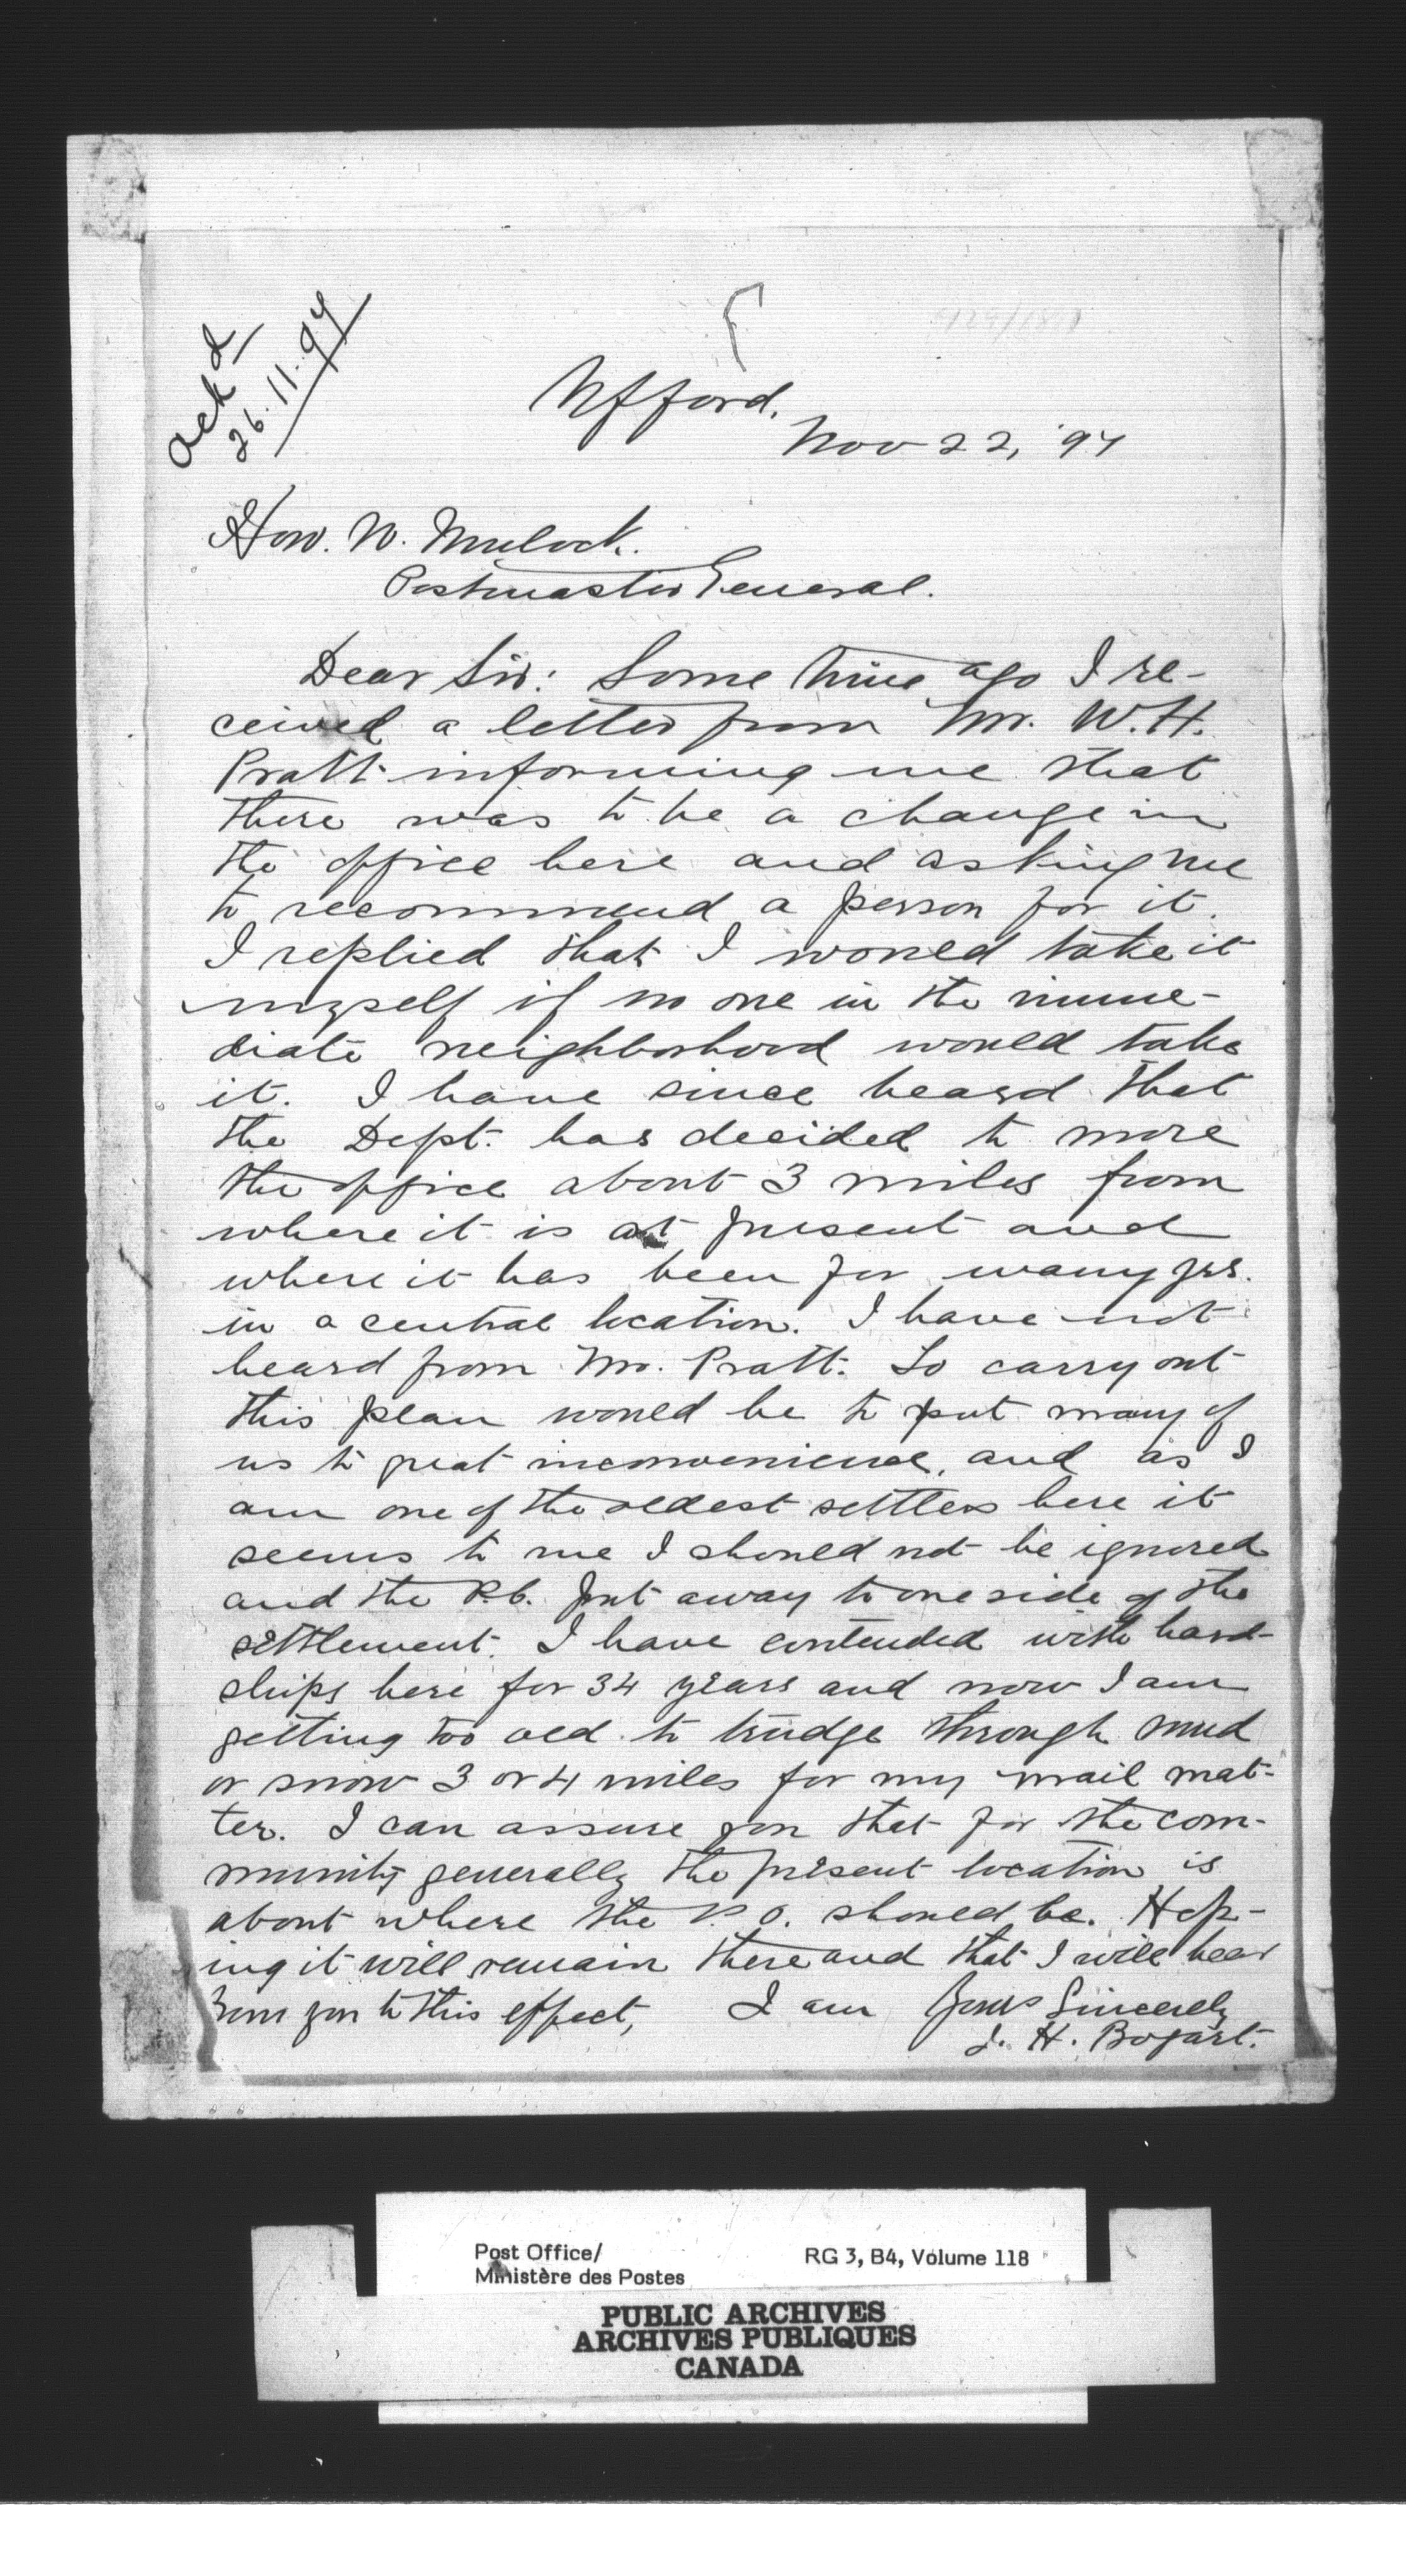 Ackd
26.11.97
Ufford.
Nov 22, '97
Hon. W. Mulock.
Postmaster General.
Dear Sir: Some time ago I re-
ceived a letter from Mr. W. H.
Pratt informing me that
there was to be a change in
the office here and asking me
to recommend a person for it.
I replied that I would take it
myself if no one in the imme-
diate neighborhood would take
it. I have since heard that
the Dept. has decided to move
the office about 3 miles from
where it is at present and
where it has been for many yrs.
in a central location. I have not
heard from Mr. Pratt. To carry out
this plan would be to put many of
us to great inconvenience, and as I
am one of the oldest settlers here it
seems to me I should not be ignored
and the P.O. put away to one side of the
settlement. I have contended with hard-
ships here for 34 years and now I am
getting too old to trudge through mud
or snow 3 or 4 miles for my mail mat-
ter. I can assure you that for the com-
munity generally the present location is
about where the P.O. should be. Hop-
ing it will remain there and that I will hear
from you to this effect, I am Yours Sincerely
J. H. Bogart.
Post Office/
Ministère des Postes
RG 3, B4, Volume 118
PUBLIC ARCHIVES
ARCHIVES PUBLIQUES
CANADA